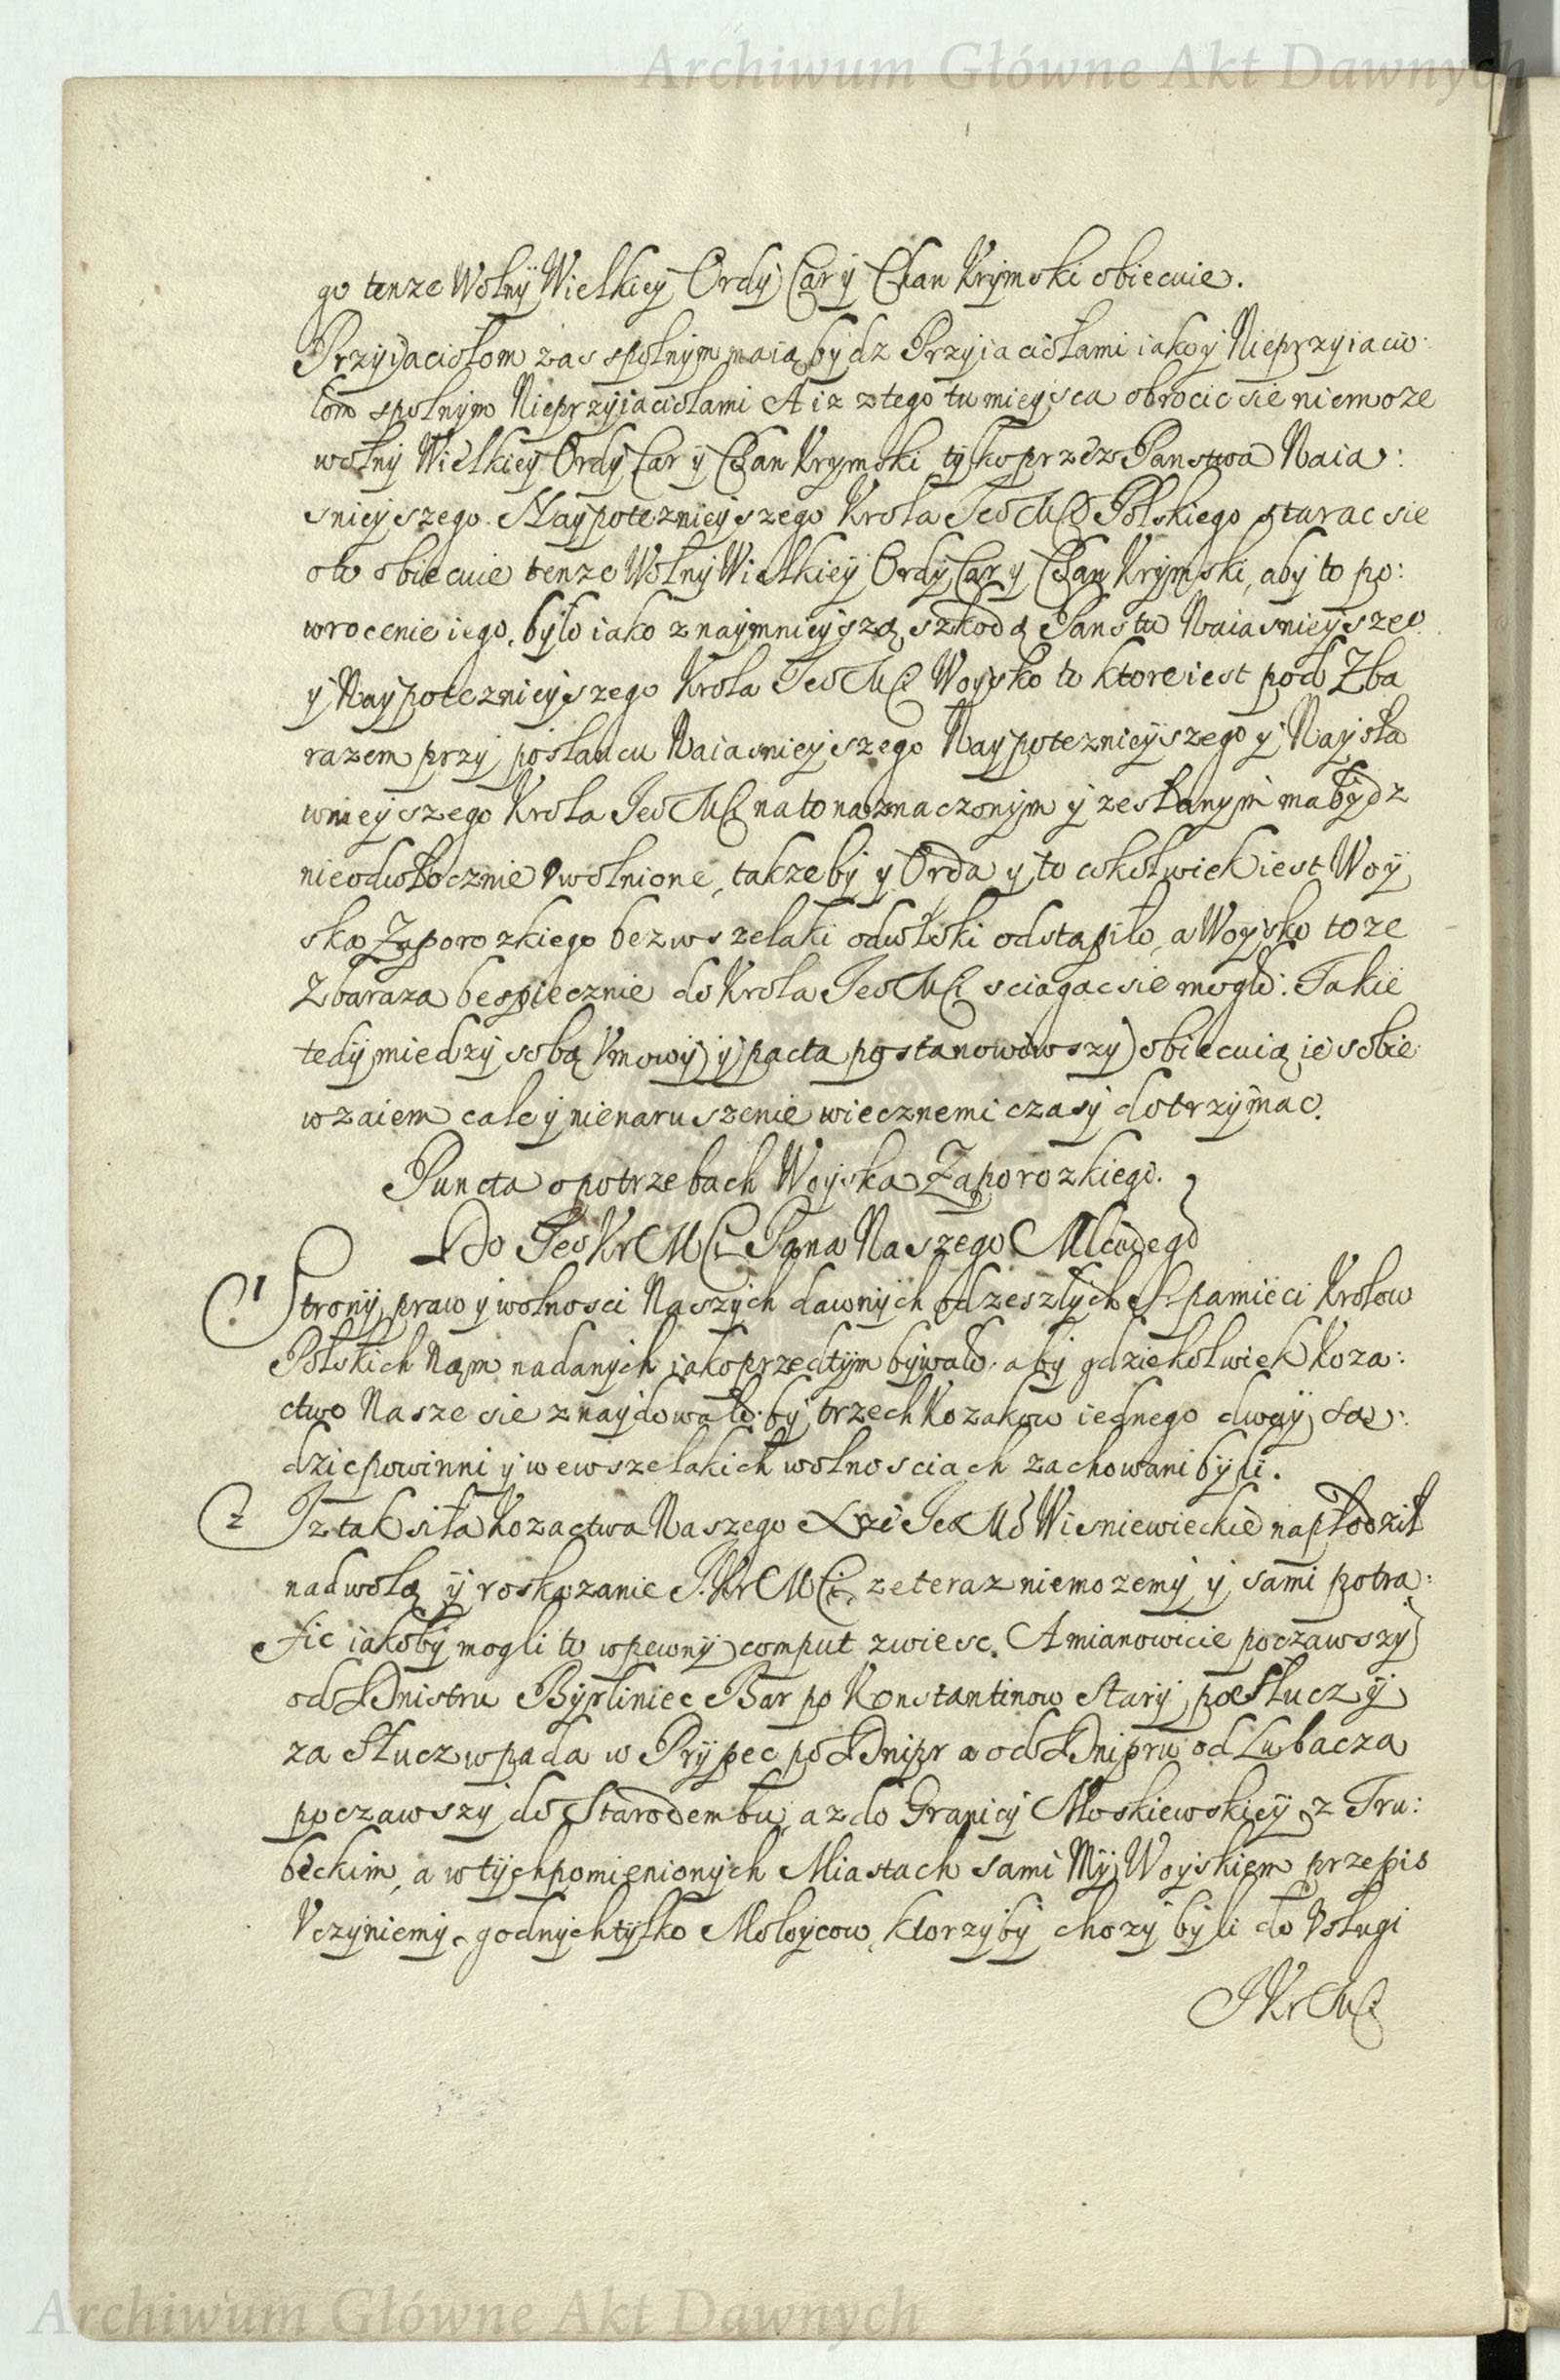 Archiwum Główne Akt Dawnych
go tenze Wolny Wielkiey Ordy Car y Chan Krymski obiecuie.
Przyiaciołom zas spolnym maią bydz Przyiaciołami iako y Nieprzyiacio:
łom spolnym Nieprzyiaciołami A iz z tego tu mieysca obrocic sie niemoze
wolny Wielkiey Ordy Car y Chan Krymski tylko przez Panstwa Naia:
snieyszego Naypoteznieyszego Krola Jeo Mci Polskiego starac sie
oto obiecuie tenze Wolny Wielkiey Ordy Car y Chan Krymski, aby to po:
wrocenie iego, było iako znaymnieyszą szkodą Panstw Naiasnieyszeo
y Naypoteznieyszego Krola Jeo Mci Woysko to ktore iest pod Zba
razem przy posłancu Naiasnieyszego Naypoteznieyszego y Naysła
wnieyszego Krola Jeo Mci na to naznaczonym y zesłanym ma bydz
nieodwłocznie Vwolnione, takze by y Orda y to cokolwiek iest Woy
ska Zaporozkiego bez wszelaki odwłoki odstapiło, a Woysko to ze
Zbaraza bespiecznie do Krola Jeo Mci sciagac sie mogło. Takie
tedy miedzy sobą Vmowy y pacta postanowiwszy obiecuią ie sobie
wzaiem cale y nienaruszenie wiecznemi czasy dotrzymac.
Puncta o potrzebach Woyska Zaporozkiego.
Do Jeo Kr Mci Pana Naszego Mciwego
1 Strony praw y wolnosci Naszych dawnych od zeszłych S. pamieci Krolow
Polskich Nam nadanych iako przedtym bywało, aby gdziekolwiek Koza:
ctwo Nasze sie znaydowało, by trzech Kozakow iednego dway sa:
dzic powinni y we wszelakich wolnosciach zachowani byli.
2 Iz tak siła Kozactwa Naszego Xże Jeo Mć Wisniewieckie napłodził
nad wolą y roskazanie J. Kr Mci, ze teraz niemozemy y sami potra:
fic iakoby mogli to w pewny comput zwiesc. A mianowicie poczawszy
od Dnistru Bypliniec Bar po Konstantinow Stary po Słucz y
za Słucz wpada w Prypec po Dnipr a od Dnipru od Lubacza
poczawszy do Starodembu, az do Granicy Moskiewskiey z Tru:
beckim, a w tych pomienionych Miastach sami My Woyskiem przepis
Vczyniemy, godnych tylko Mołoycow, ktorzy by chozy byli do Vsługi
J Kr Mci
Archiwum Główne Akt Dawnych